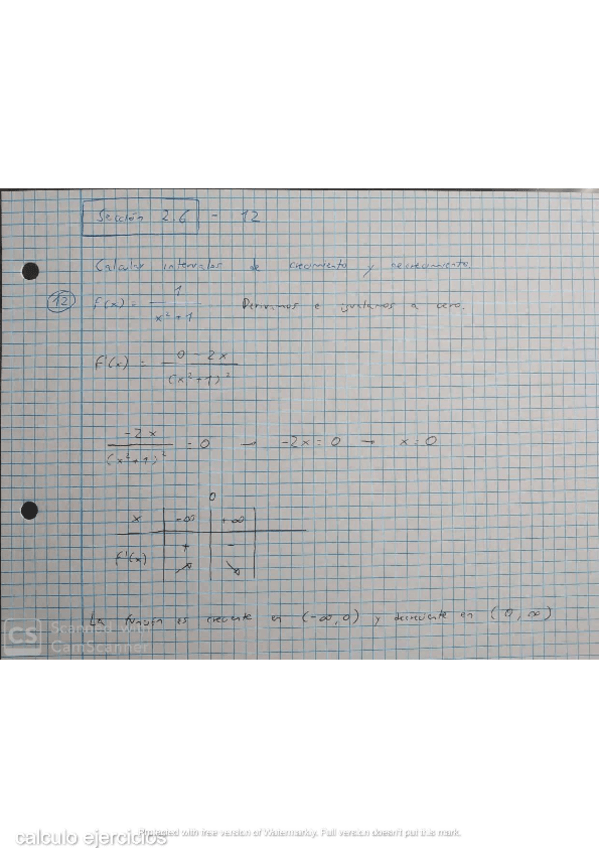 Sección 2.6 - 12
Calcular intervalos de crecimiento y decrecimiento
12 f(x) = 1 / (x² + 1) Derivamos e igualamos a cero.
f'(x) = (0 - 2x) / (x² + 1)²
-2x / (x² + 1)² = 0 → -2x = 0 → x = 0
0
x -∞ +∞
f'(x) + -
↗ ↘
La función es creciente en (-∞, 0) y decreciente en (0, ∞)
CS Scanned with
CamScanner
Protected with free version of Watermarkly. Full version doesn't put this mark.
calculo ejercicios